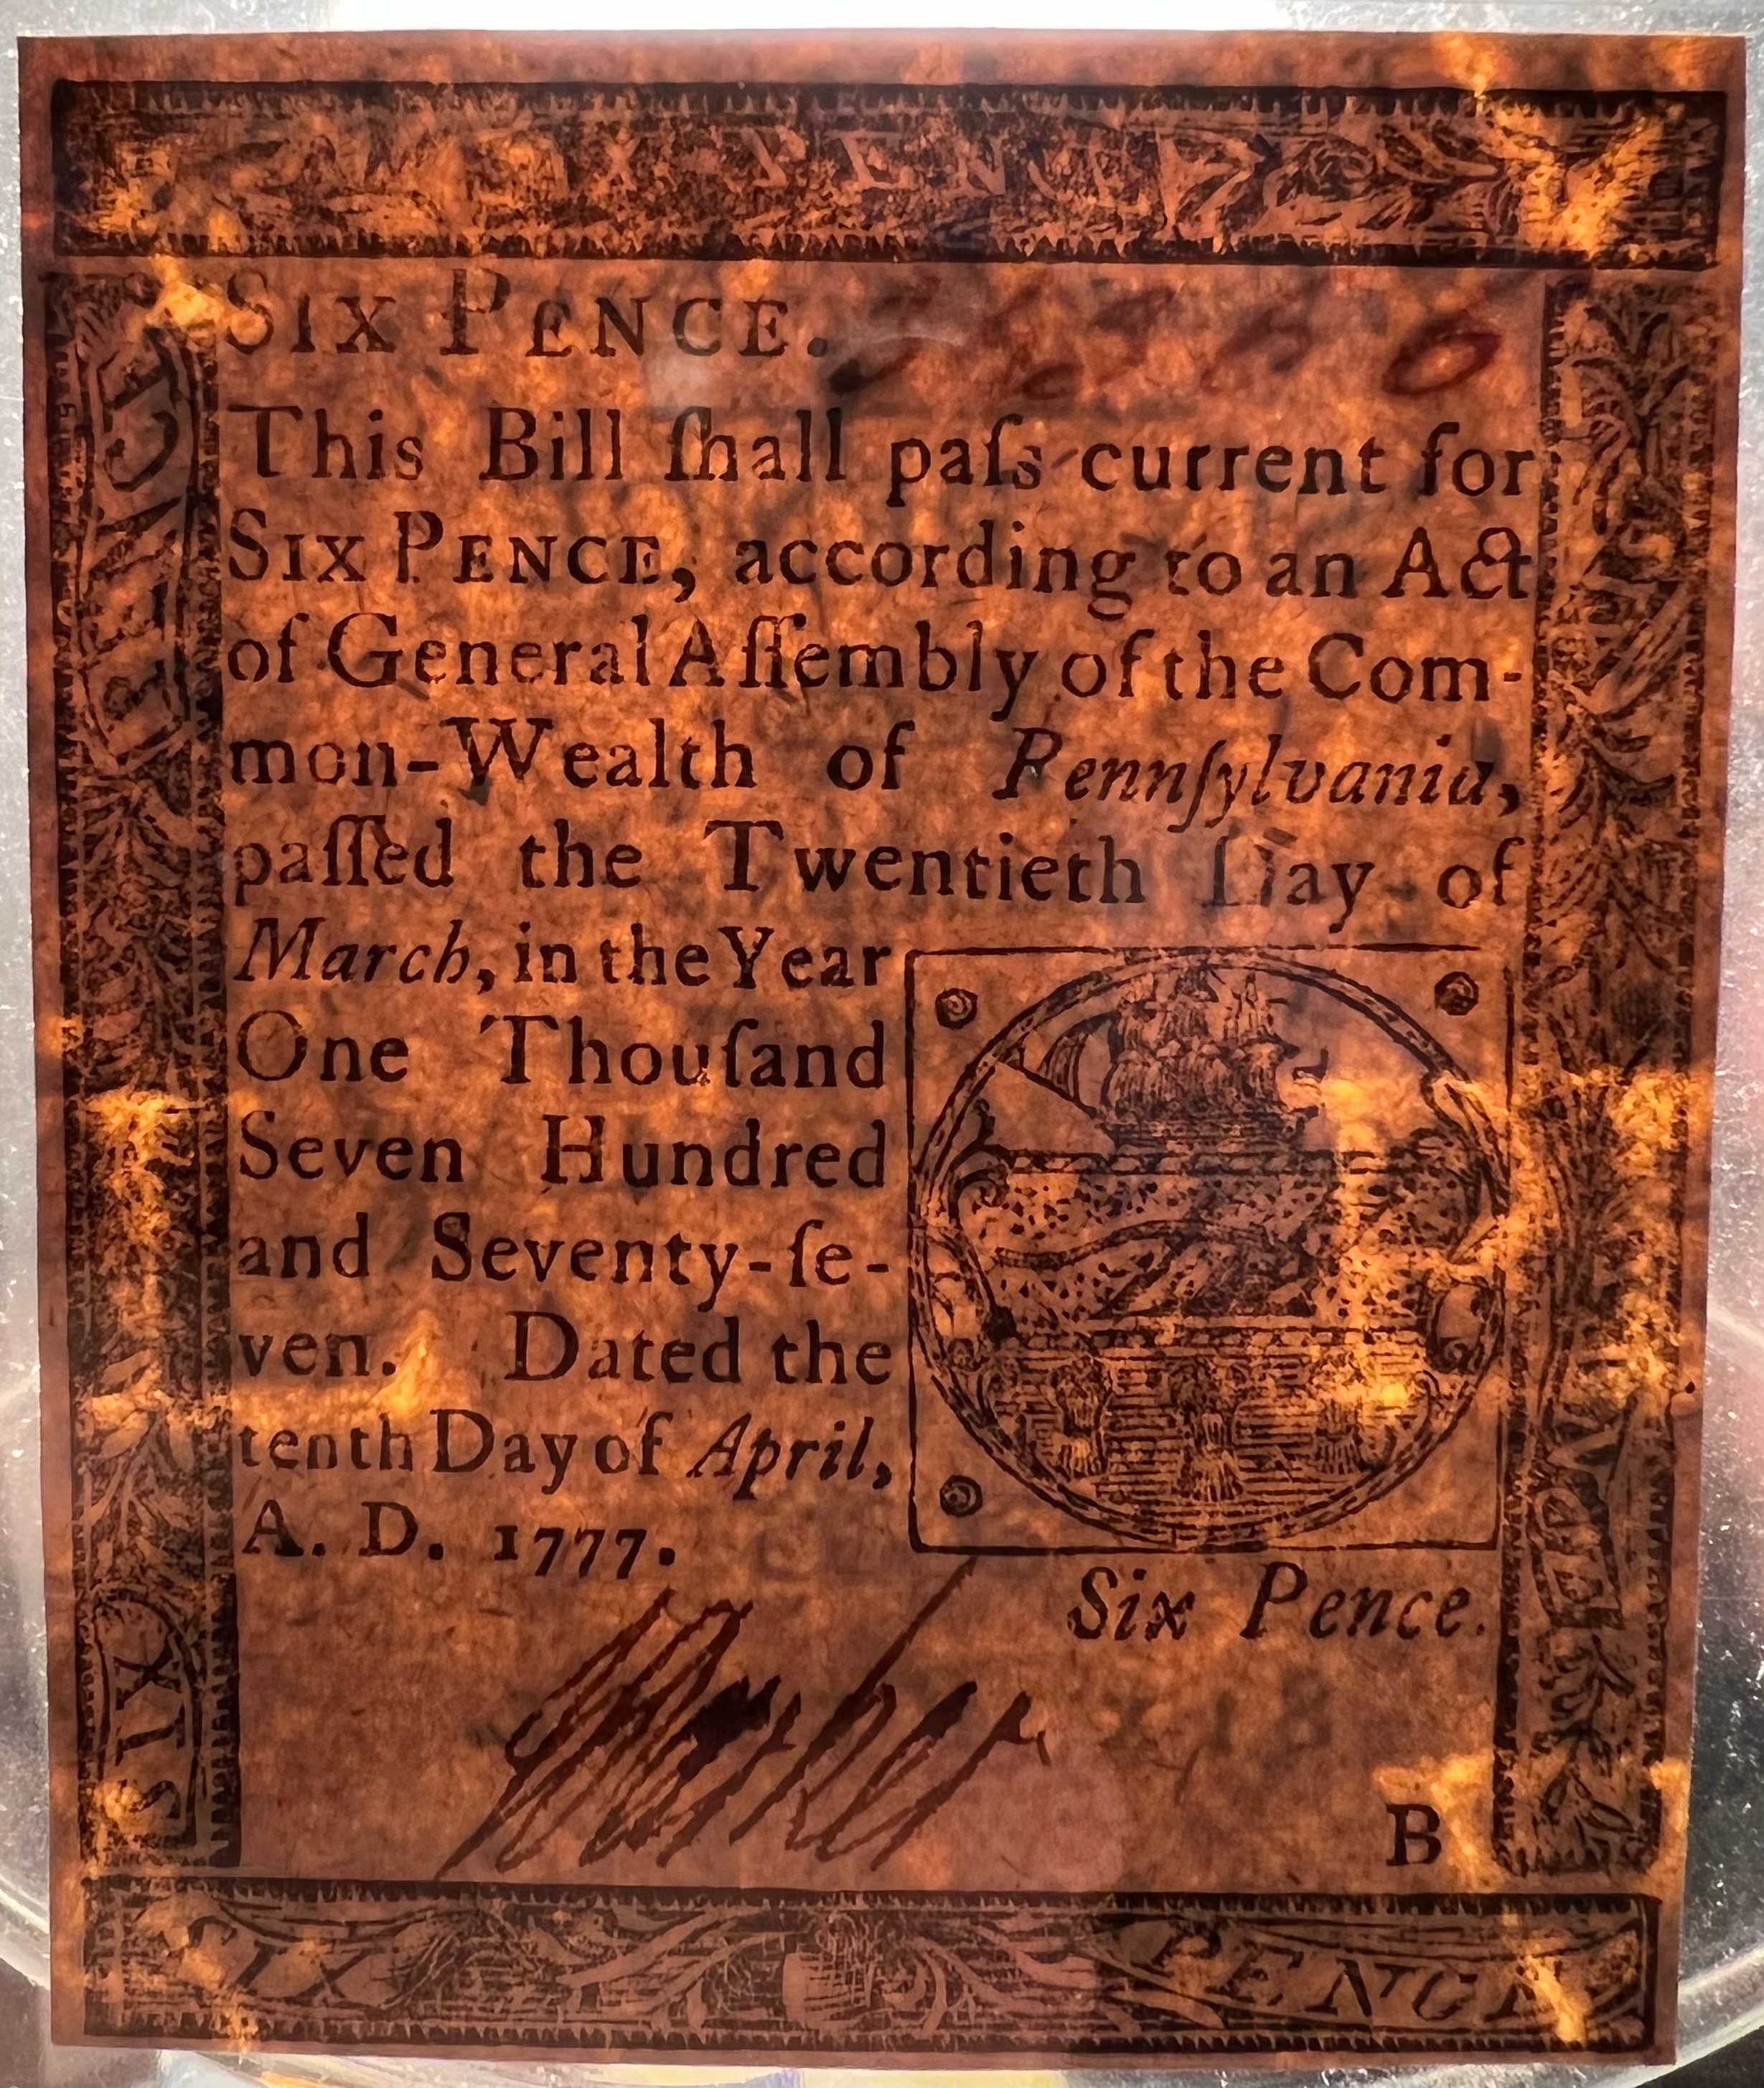 SIX PENCE.
This Bill ſhall paſs current for
SIX PENCE, according to an Act
of General Aſſembly of the Com-
mon-Wealth of Pennſylvania,
paſſed the Twentieth Day of
March, in the Year
One Thouſand
Seven Hundred
and Seventy-ſe-
ven. Dated the
tenth Day of April,
A. D. 1777.
Six Pence.
B
SIX
SIX PENCE